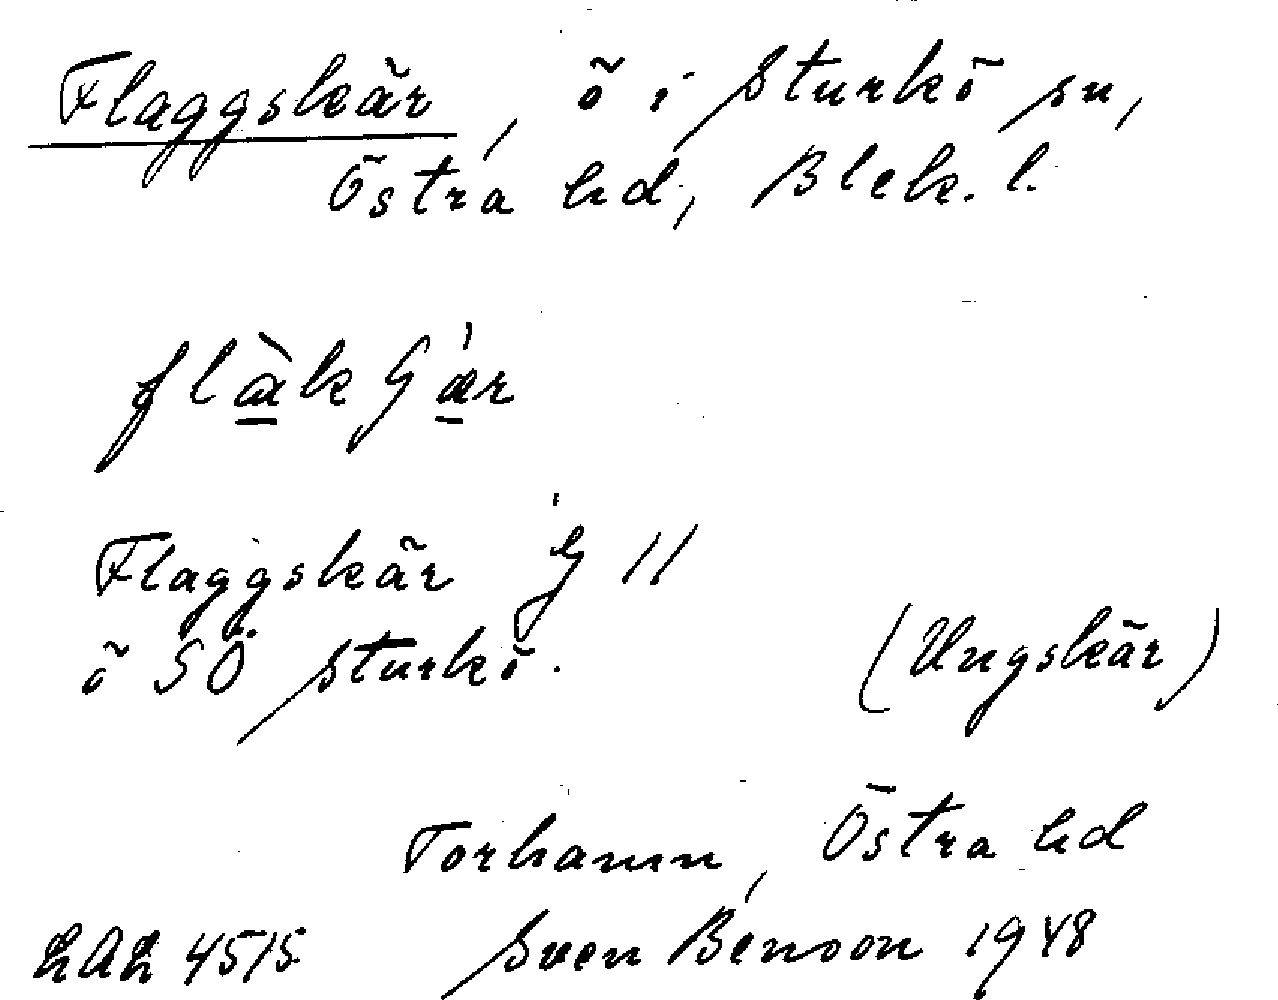 Flaggskär, ö i Sturkö sn,
Östra hd, Blek. l.
Flaggskär G 11
ö SÖ Sturkö.
(Ungskär)
Torhamn, Östra hd
LAL 4515 Sven Benson 1948